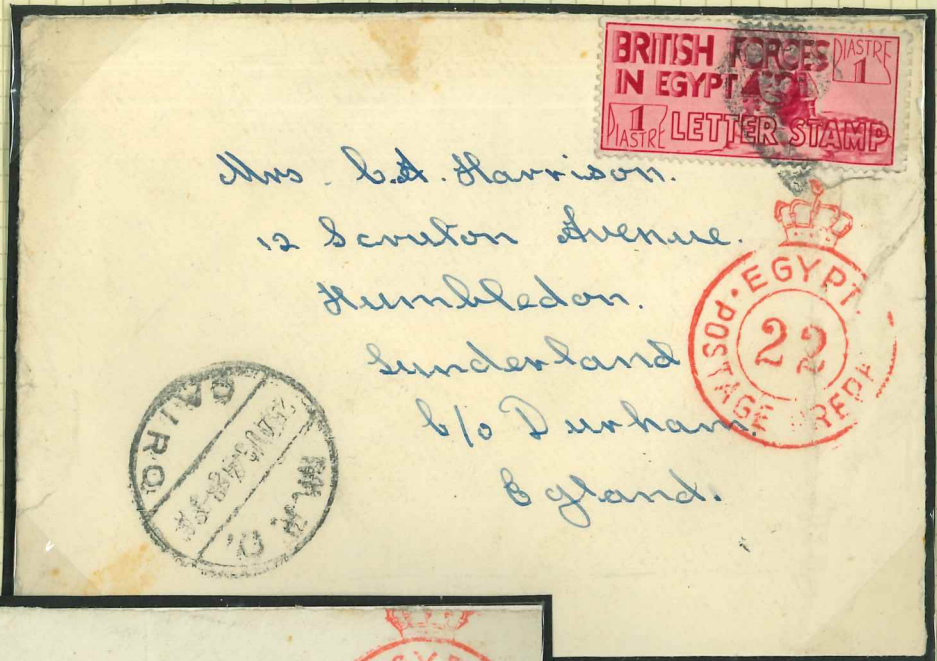 BRITISH FORCES
IN EGYPT
PIASTRE
1
1
PIASTRE
LETTER STAMP
Mrs. C.A. Harrison.
12 Scruton Avenue.
Humbledon.
Sunderland
C/o Durham.
Egland.
EGYPT
22
POSTAGE PREPA
CAIRO
M.P.O.